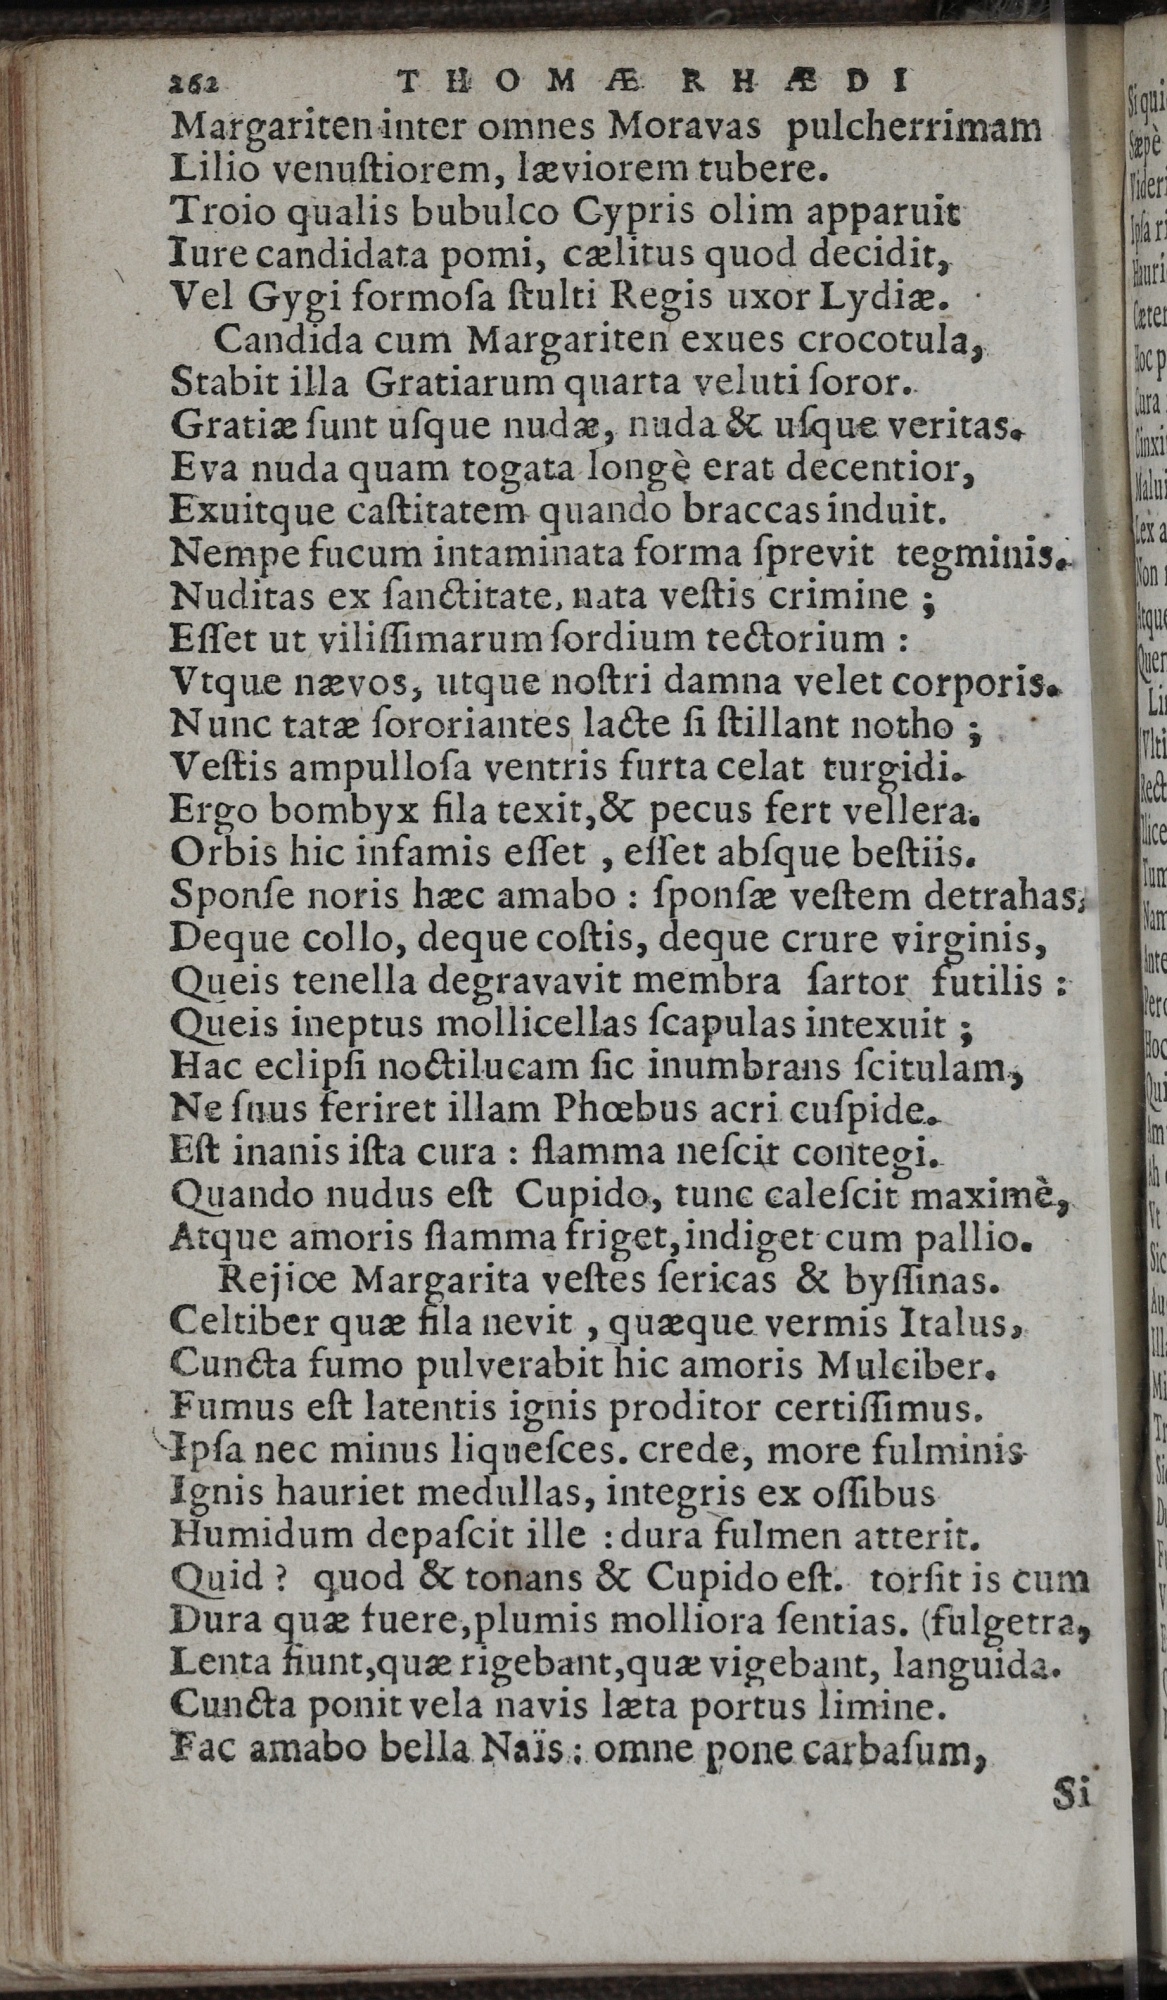 262 THOMÆ RHÆDI
Margariten inter omnes Moravas pulcherrimam
Lilio venuſtiorem, læviorem tubere.
Troio qualis bubulco Cypris olim apparuit
Iure candidata pomi, cælitus quod decidit,
Vel Gygi formoſa ſtulti Regis uxor Lydiæ.
Candida cum Margariten exues crocotula,
Stabit illa Gratiarum quarta veluti ſoror.
Gratiæ ſunt uſque nudæ, nuda & uſque veritas.
Eva nuda quam togata longè erat decentior,
Exuitque caſtitatem quando braccas induit.
Nempe fucum intaminata forma ſprevit tegminis.
Nuditas ex ſanctitate, nata veſtis crimine ;
Eſſet ut viliſſimarum ſordium tectorium :
Vtque nævos, utque noſtri damna velet corporis.
Nunc tatæ ſororiantes lacte ſi ſtillant notho ;
Veſtis ampulloſa ventris furta celat turgidi.
Ergo bombyx fila texit, & pecus fert vellera.
Orbis hic infamis eſſet , eſſet abſque beſtiis.
Sponſe noris hæc amabo : ſponſæ veſtem detrahas,
Deque collo, deque coſtis, deque crure virginis,
Queis tenella degravavit membra ſartor futilis :
Queis ineptus mollicellas ſcapulas intexuit ;
Hac eclipſi noctilucam ſic inumbrans ſcitulam,
Ne ſuus feriret illam Phœbus acri cuſpide.
Eſt inanis iſta cura : flamma neſcit contegi.
Quando nudus eſt Cupido, tunc caleſcit maximè,
Atque amoris flamma friget, indiget cum pallio.
Rejice Margarita veſtes ſericas & byſſinas.
Celtiber quæ fila nevit , quæque vermis Italus,
Cuncta fumo pulverabit hic amoris Mulciber.
Fumus eſt latentis ignis proditor certiſſimus.
Ipſa nec minus liqueſces. crede, more fulminis
Ignis hauriet medullas, integris ex oſſibus
Humidum depaſcit ille : dura fulmen atterit.
Quid ? quod & tonans & Cupido eſt. torſit is cum
Dura quæ fuere, plumis molliora ſentias. (fulgetra,
Lenta fiunt, quæ rigebant, quæ vigebant, languida.
Cuncta ponit vela navis læta portus limine.
Fac amabo bella Naïs : omne pone carbaſum,
Si